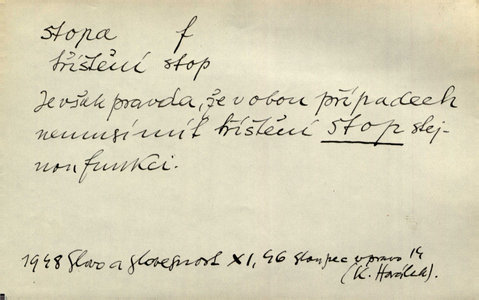 stopa f
tříštění stop
Je však pravda, že v obou případech
nemusí mít tříštění stop stej-
nou funkci.
1948 Slovo a slovesnost XI, 46 sloupec vpravo 14
(K. Horálek).